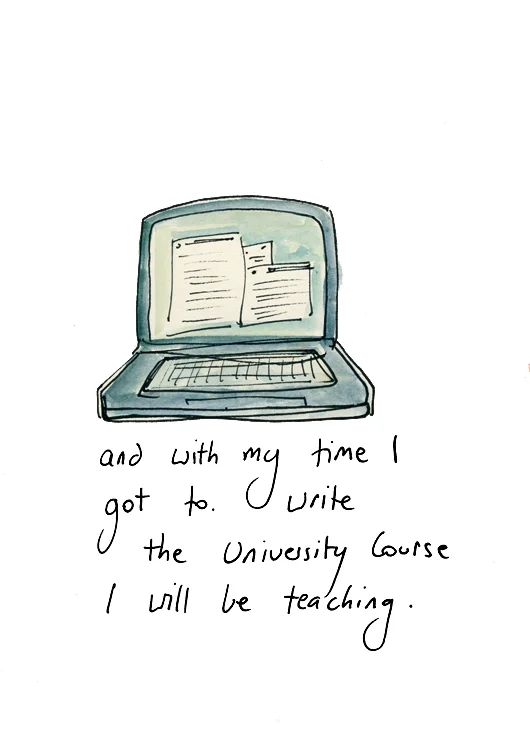 and with my time I
got to. write
the University Course
I will be teaching.